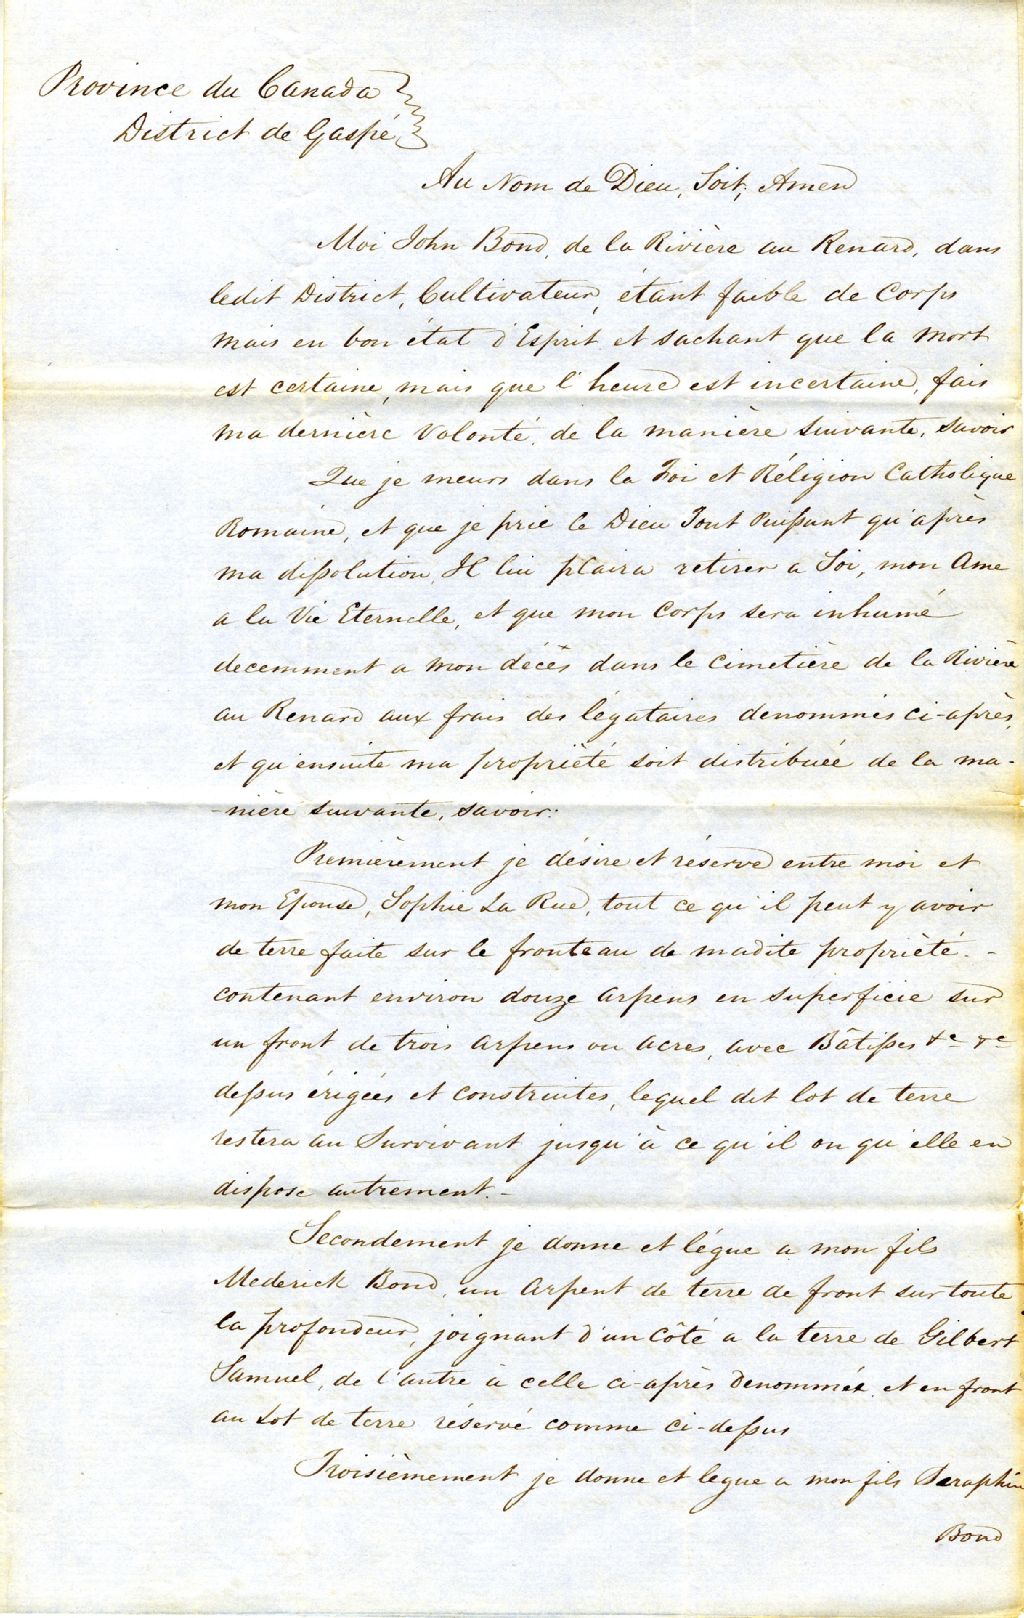 Province du Canada
District de Gaspé
Au Nom de Dieu, Soit, Amen
Moi John Bond, de la Rivière au Renard, dans
ledit District, Cultivateur, étant faible de Corps
mais en bon état d'Esprit et sachant que la mort
est certaine, mais que l'heure est incertaine, fais
ma dernière Volonté, de la manière suivante, savoir
Que je meurs dans la Foi et Réligion Catholique
Romaine, et que je prie le Dieu Tout Puissant qu'après
ma dissolution, Il lui plaira retirer a Soi, mon Ame
a la Vie Eternelle, et que mon Corps sera inhumé
decemment a mon décès dans le Cimetière de la Rivière
au Renard aux frais des légataires denommés ci-après,
et qu'ensuite ma propriété soit distribuée de la ma-
-nière suivante, savoir:
Premièrement je désire et réserve entre moi et
mon Epouse, Sophie La Rue, tout ce qu'il peut y avoir
de terre faite sur le fronteau de madite propriété. -
contenant environ douze Arpens en superficie sur
un front de trois Arpens ou acres, avec Bâtisses &c &c
dessus érigées et construites, lequel dit lot de terre
restera au Survivant jusqu'à ce qu'il ou qu'elle en
dispose autrement. -
Secondement je donne et légue a mon fils
Mederick Bond, un Arpent de terre de front sur toute
la profondeur, joignant d'un Côté a la terre de Gilbert
Samuel, de l'autre à celle ci-après denommée, et en front
au Lot de terre réservé comme ci-dessus
Troisièmement je donne et legue a mon fils Seraphin
Bond